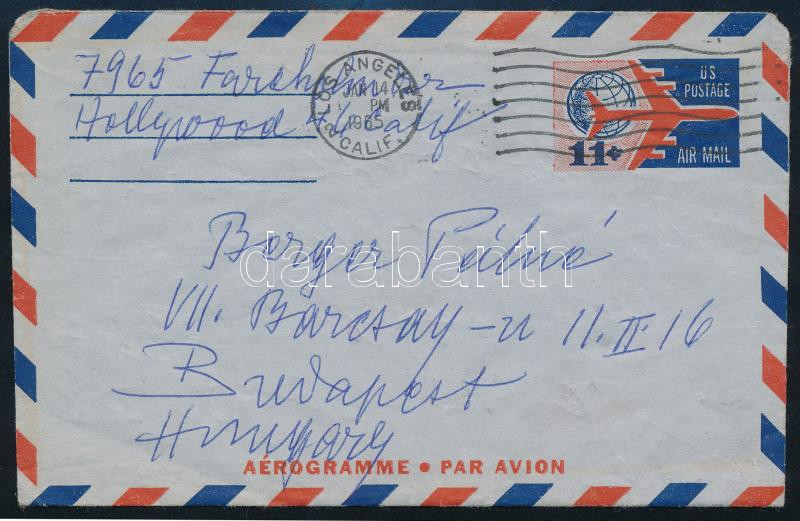 7965 Fareholm Dr
Hollywood 46 Calif
LOS ANGELES
JAN 14
PM
1965
CALIF. 2
US
POSTAGE
11¢
AIR MAIL
Berger Pálné
VII. Barcsay-u 11. II. 16
Budapest
Hungary
darabanth
AÉROGRAMME • PAR AVION